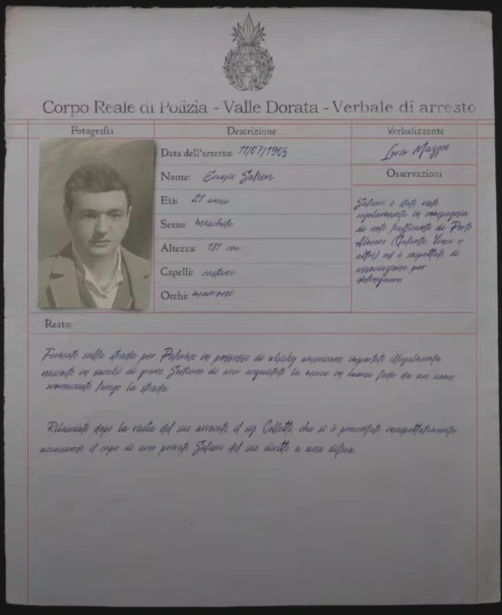 Corpo Reale di Polizia - Valle Dorata - Verbale di arresto
Fotografia
Descrizione
Data dell'arresto: 19/07/1905
Nome: Salieri
Età: 21 anni
Sesso: maschile
Altezza: 181 cm
Capelli: castani
Occhi: marroni
Verbalizzante
Osservazioni
Salieri è stato visto
regolarmente in compagnia
di noti trafficanti di Porto
altri) ed è sospettato di
associazione per
delinquere
Reato:
Fermato sulla strada per Palermo in possesso di whisky americano importato illegalmente
nascosto in sacchi di grano. Sostiene di aver acquistato la merce in buona fede da un uomo
sconosciuto lungo la strada
Rilasciato dopo la visita del suo avvocato, il sig. Colletti, che si è presentato inaspettatamente
accusando il capo di aver privato Salieri del suo diritto a una difesa